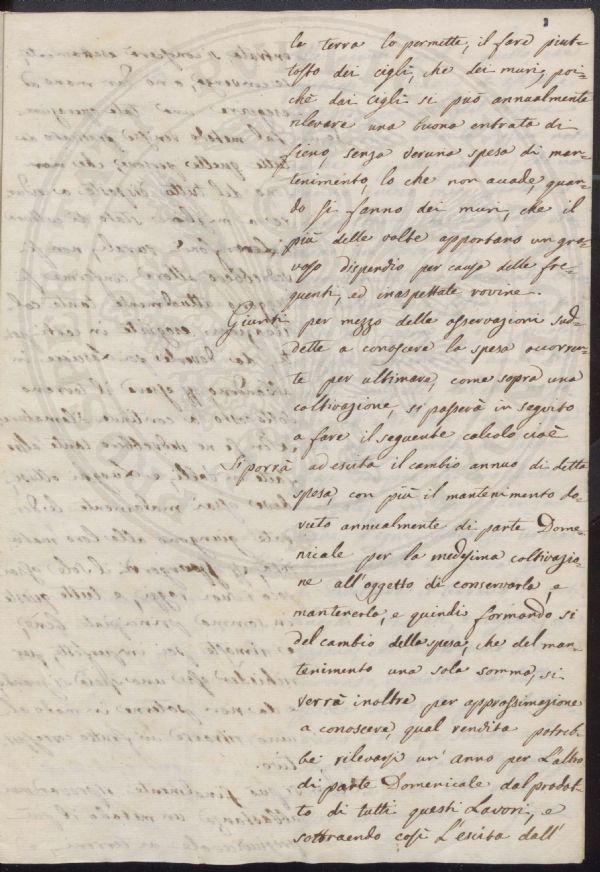 3
la terra lo permette, il fare piut-
tosto dei cigli, che dei muri, poi-
chè dai cigli si può annualmente
rilevare una buona entrata di
fieno, senza veruna spesa di man-
tenimento, lo che non accade, quan-
do si fanno dei muri, che il
più delle volte apportano un gra-
voso dispendio per causa delle fre-
quenti, ed inaspettate rovine.
Giunti per mezzo delle osservazioni sud-
dette a conoscere la spesa occorren-
te per ultimare, come sopra una
coltivazione, si passerà in seguito
a fare il seguente calcolo cioè
Si porrà ad escita il cambio annuo di detta
spesa, con più il mantenimento do-
vuto annualmente di parte Dome-
nicale per la medesima coltivazio-
ne all'oggetto di conservarla, e
mantenerla, e quindi formando si
del cambio della spesa, che del man-
tenimento una sola somma, si
verrà inoltre per approssimazione
a conoscere qual rendita potreb-
be rilevarsi un'anno per L'altro
di parte Domenicale dal prodot-
to di tutti questi Lavori, e
sottraendo così L'escita dall'